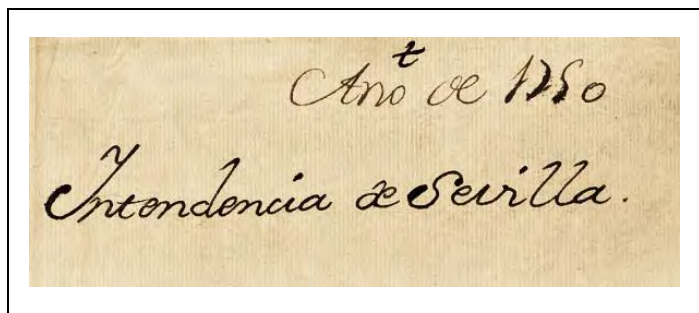 t
Año de 1750
Intendencia de Sevilla.